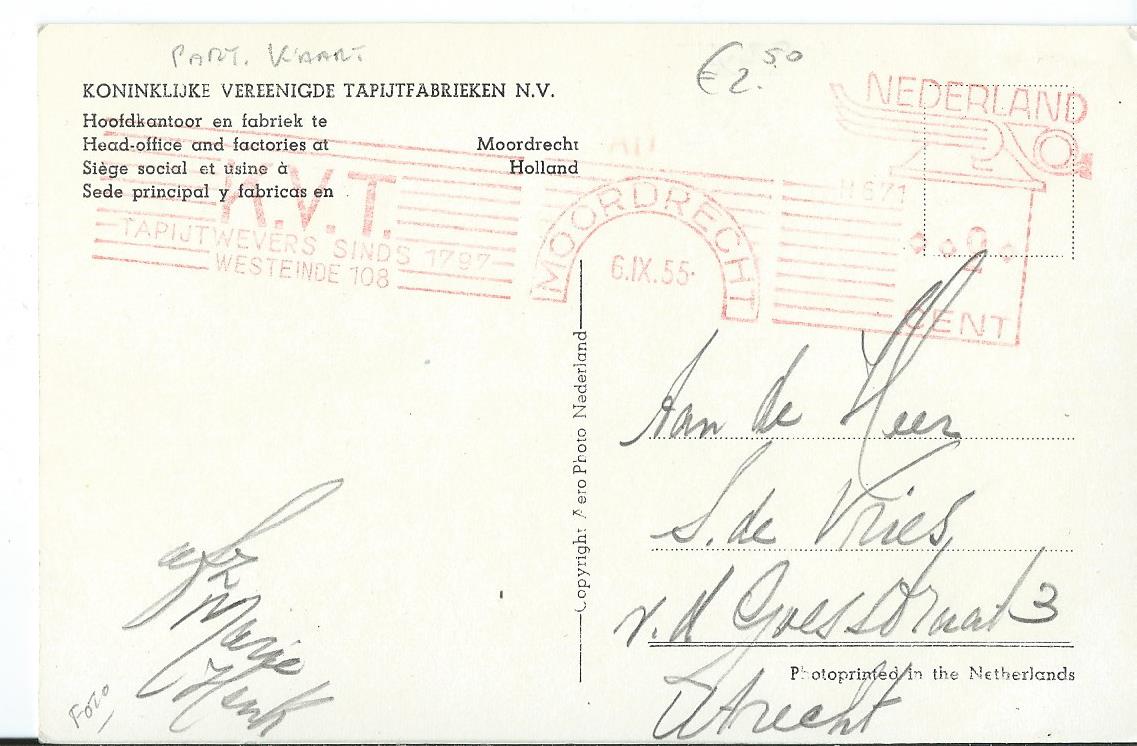 PART. KAART
€2.50
KONINKLIJKE VEREENIGDE TAPIJTFABRIEKEN N.V.
Hoofdkantoor en fabriek te
Head-office and factories at
Siège social et usine à
Sede principal y fabricas en
Moordrecht
Holland
K.V.T.
TAPIJTWEVERS SINDS 1797
WESTEINDE 108
MOORDRECHT
6.IX.55
NEDERLAND
H 671
2
CENT
Copyright AeroPhoto Nederland
Aan de Heer
S. de Vries,
v.d Goesstraat 3
Utrecht
Photoprinted in the Netherlands
Marie
Henk
Foto